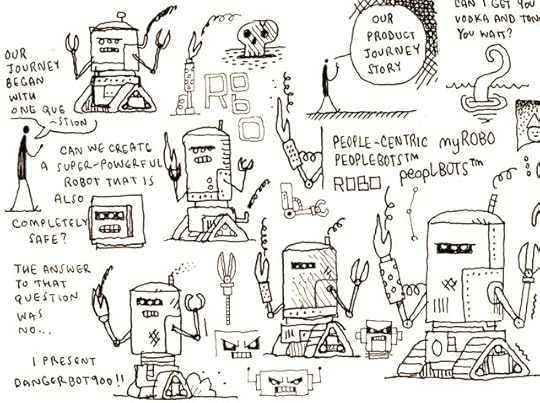 OUR
JOURNEY
BEGAN
WITH
ONE QUE
-STION
CAN WE CREATE
A SUPER-POWERFUL
ROBOT THAT IS
ALSO
COMPLETELY
SAFE?
THE ANSWER
TO THAT
QUESTION
WAS
NO...
I PRESENT
DANGERBOT900!!
ROBO
OUR
PRODUCT
JOURNEY
STORY
CAN I GET YOU
VODKA AND
YOU WAIT?
PEOPLE-CENTRIC myROBO
PEOPLEBOTS™
ROBO peoplBOTS™